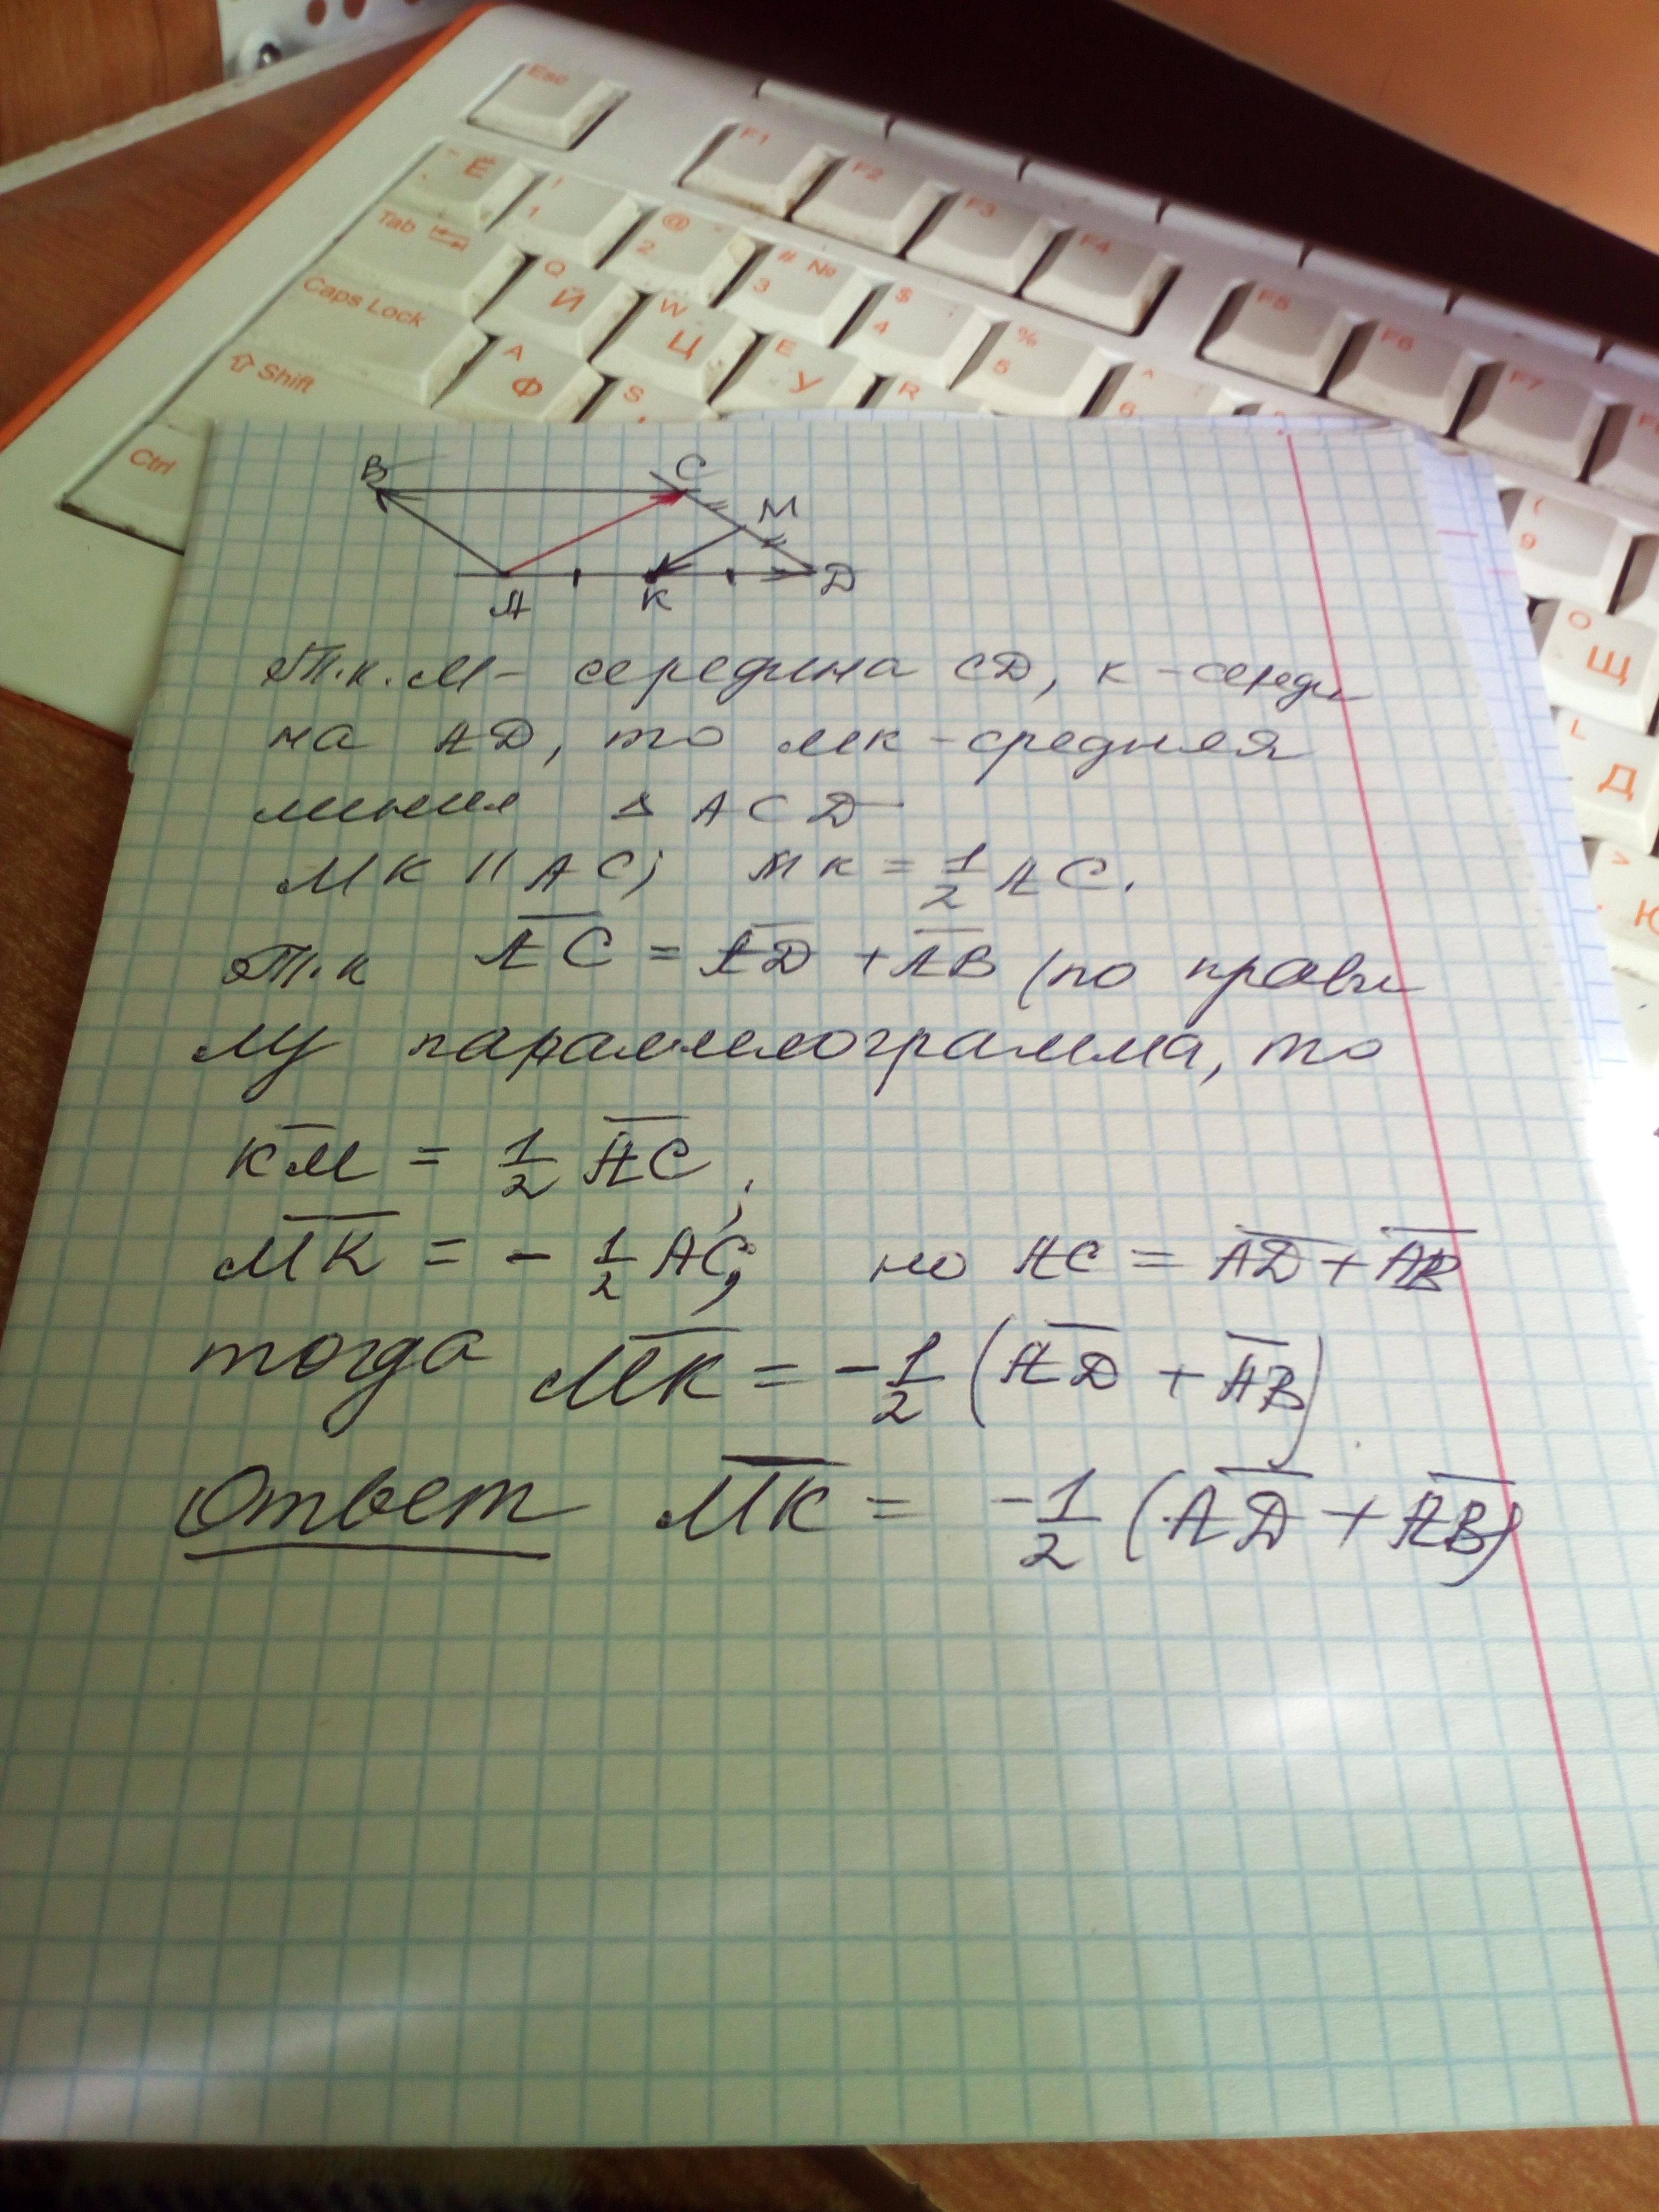 Esc
F1 F2 F3 F4 F5 F6 F7
Ё ! 1 @ 2 # № 3 $ 4 % 5 ^ 6 ( 9
Tab Q Й W Ц E У R O Щ
Caps Lock A Ф S L Д
Shift Ю
Ctrl
B C
M
A K D
Т.к. M - середина CD, K - середи
на AD, то MK - средняя
линия Δ ACD
MK || AC; MK = 1/2 AC.
Т.к A̅C̅ = A̅D̅ + A̅B̅ (по прави
лу параллелограмма, то
K̅M̅ = 1/2 A̅C̅,
M̅K̅ = - 1/2 AC; но AC = A̅D̅ + A̅B̅
тогда M̅K̅ = - 1/2 (A̅D̅ + A̅B̅)
Ответ M̅K̅ = - 1/2 (A̅D̅ + A̅B̅)